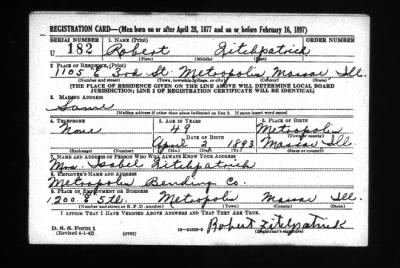 REGISTRATION CARD—(Men born on or after April 28, 1877 and on or before February 16, 1897)
SERIAL NUMBER 1. NAME (Print) ORDER NUMBER
U 182 Robert Fitzpatrick
(First) (Middle) (Last)
2. PLACE OF RESIDENCE (Print)
1105 E 3rd St. Metropolis, Massac Ill.
(Number and street) (Town, township, village, or city) (County) (State)
[THE PLACE OF RESIDENCE GIVEN ON THE LINE ABOVE WILL DETERMINE LOCAL BOARD
JURISDICTION; LINE 2 OF REGISTRATION CERTIFICATE WILL BE IDENTICAL]
3. MAILING ADDRESS
Same
[Mailing address if other than place indicated on line 2. If same insert word same]
4. TELEPHONE 5. AGE IN YEARS 6. PLACE OF BIRTH
None 49 Metropolis
DATE OF BIRTH (Town or county)
April 2 1893 Massac Ill.
(Exchange) (Number) (Mo.) (Day) (Yr.) (State or country)
7. NAME AND ADDRESS OF PERSON WHO WILL ALWAYS KNOW YOUR ADDRESS
Mrs. Isabel Fitzpatrick
8. EMPLOYER'S NAME AND ADDRESS
Metropolis Bending Co.
9. PLACE OF EMPLOYMENT OR BUSINESS
1200 E 5th. Metropolis Massac Ill.
(Number and street or R. F. D. number) (Town) (County) (State)
I AFFIRM THAT I HAVE VERIFIED ABOVE ANSWERS AND THAT THEY ARE TRUE.
D. S. S. Form 1
(Revised 4-1-42) (over) Robert Fitzpatrick
(Registrant's signature)